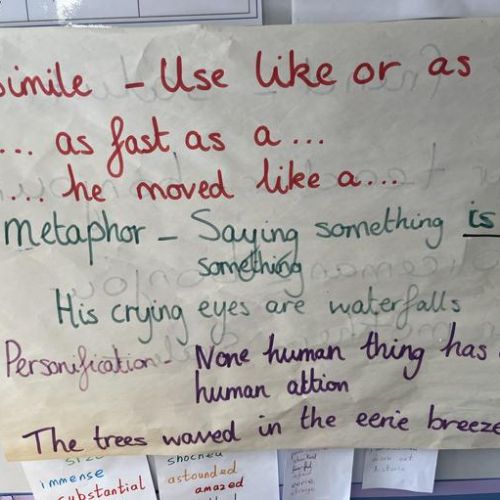 simile - Use like or as
... as fast as a ...
... he moved like a...
Metaphor - Saying something is
something
His crying eyes are waterfalls
Personification - None human thing has
human attion
The trees waved in the eerie breeze
size
immense
substantial
shocked
astounded
amazed